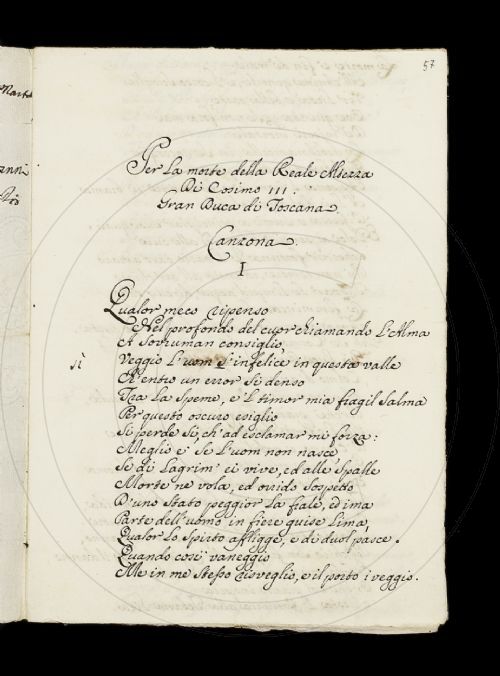 57
Per La morte della Reale Altezza
Di Cosimo III.
Gran Duca di Toscana
Canzona
I
Qualor meco ripenso
Nel profondo del cuor chiamando L'Alma
A Sovruman consiglio
Veggio L'uom s'infelice in questa valle
sì
Ch'entro un error sì denso
Tra La Speme, e 'l timor mia fragil Salma
Per questo oscuro esiglio
Si perde sì, ch'ad esclamar mi forza:
Meglio e' se L'uom non nasce
Se di Lagrim' ei vive, ed alle Spalle
Morte ne vola, ed orrido Sospetto
D'uno Stato peggior La fiale, ed ima
Parte dell'uomo in fiere guise Lima,
Qualor Lo Spirto affligge, e di duol pasce.
Quando così vaneggio
Me in me Stesso risveglio, e il porto i veggio.